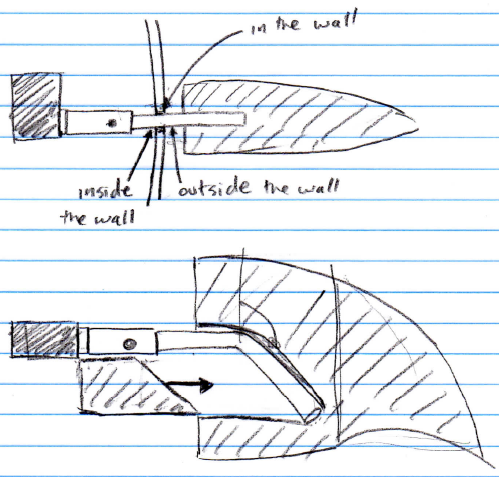 in the wall
inside
the wall
outside the wall